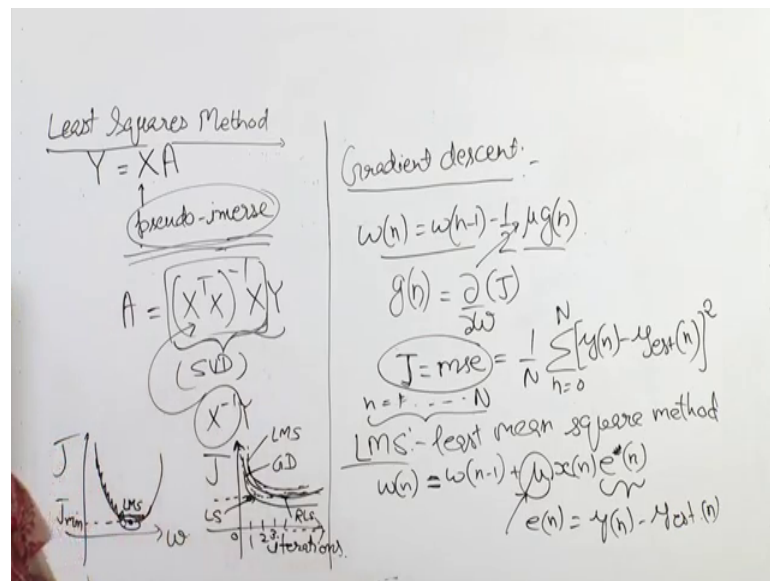 Least Squares Method
Y = XA
pseudo-inverse
A = (XᵀX)⁻¹X Y
(SVD)
X⁻¹Y
J
Jmin
LMS
w
J
LMS
GD
LS
RLS
0 1 2 3
iterations
Gradient descent:-
w(n) = w(n-1) - 1/2 μg(n)
g(n) = ∂/∂w (J)
J = mse = 1/N Σ_{n=0}^{N} [y(n) - y_est(n)]²
n = 1 . . - - . N
LMS:- least mean square method
w(n) = w(n-1) + μ x(n) e*(n)
e(n) = y(n) - y_est(n)